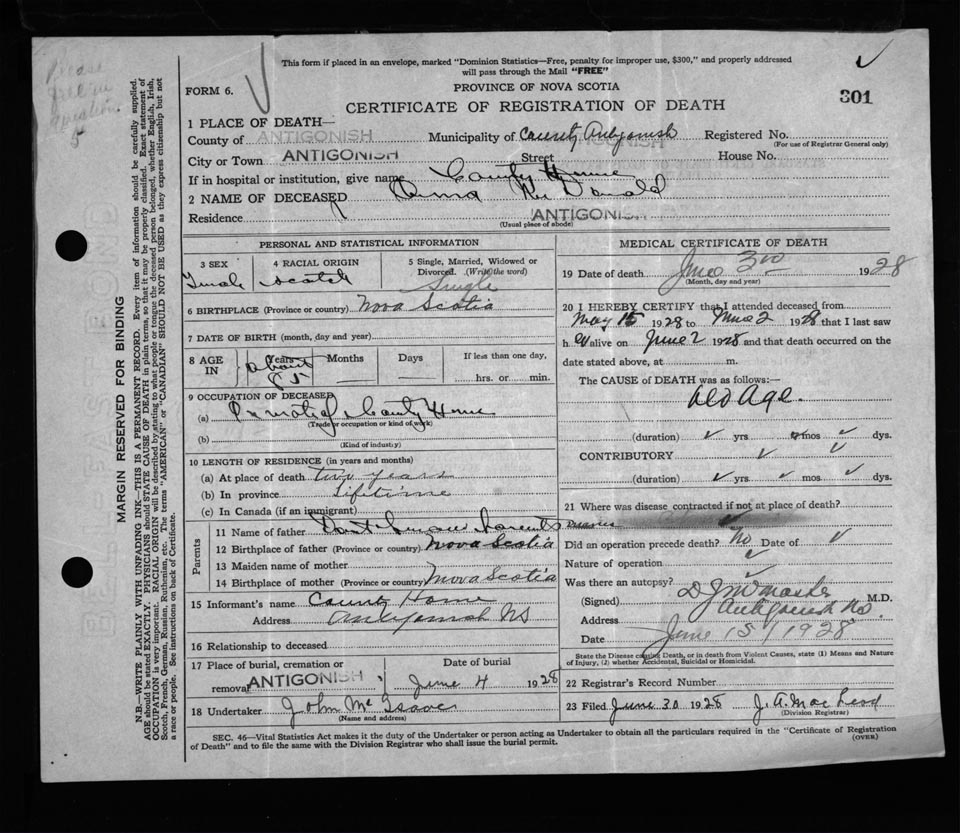 Please
give
question
5
This form if placed in an envelope, marked "Dominion Statistics—Free, penalty for improper use, $300," and properly addressed
will pass through the Mail "FREE"
FORM 6.
PROVINCE OF NOVA SCOTIA
CERTIFICATE OF REGISTRATION OF DEATH
301
1 PLACE OF DEATH—
County of ANTIGONISH Municipality of County Antigonish Registered No.
(For use of Registrar General only)
City or Town ANTIGONISH Street House No.
If in hospital or institution, give name County Home
2 NAME OF DECEASED McDonald
Residence ANTIGONISH
(Usual place of abode)
PERSONAL AND STATISTICAL INFORMATION
3 SEX 4 RACIAL ORIGIN 5 Single, Married, Widowed or Divorced. (Write the word)
Female Scotch Single
6 BIRTHPLACE (Province or country) Nova Scotia
7 DATE OF BIRTH (month, day and year)
8 AGE IN Years Months Days If less than one day,
About 85 hrs. or min.
9 OCCUPATION OF DECEASED
(a) Inmate of County Home
(Trade or occupation or kind of work)
(b)
(Kind of industry)
10 LENGTH OF RESIDENCE (in years and months)
(a) At place of death two years
(b) In province Lifetime
(c) In Canada (if an immigrant)
Parents
11 Name of father Don't know parents names
12 Birthplace of father (Province or country) Nova Scotia
13 Maiden name of mother
14 Birthplace of mother (Province or country) Nova Scotia
15 Informant's name County Home
Address Antigonish NS
16 Relationship to deceased
17 Place of burial, cremation or removal ANTIGONISH Date of burial June 4 1928
18 Undertaker John McIsaac
(Name and address)
MEDICAL CERTIFICATE OF DEATH
19 Date of death June 3rd 1928
(Month, day and year)
20 I HEREBY CERTIFY that I attended deceased from
May 15 1928 to June 2 1928 that I last saw
h er alive on June 2 1928 and that death occurred on the
date stated above, at m.
The CAUSE OF DEATH was as follows:—
Old Age.
(duration) yrs mos dys.
CONTRIBUTORY
(duration) yrs. mos. dys.
21 Where was disease contracted if not at place of death?
Did an operation precede death? No Date of
Nature of operation
Was there an autopsy?
(Signed) M.D.
Address Antigonish NS.
Date June 15/1928
State the Disease causing Death, or in death from Violent Causes, state (1) Means and Nature
of Injury, (2) whether Accidental, Suicidal or Homicidal.
22 Registrar's Record Number
23 Filed June 30 1928 J. A. MacLeod
(Division Registrar)
SEC. 46—Vital Statistics Act makes it the duty of the Undertaker or person acting as Undertaker to obtain all the particulars required in the "Certificate of Registration
of Death" and to file the same with the Division Registrar who shall issue the burial permit.
(OVER)
MARGIN RESERVED FOR BINDING
N.B.—WRITE PLAINLY WITH UNFADING INK—THIS IS A PERMANENT RECORD. Every item of information should be carefully supplied.
AGE should be stated EXACTLY. PHYSICIANS should STATE CAUSE OF DEATH in plain terms, so that it may be properly classified. Exact statement of
OCCUPATION is very important. RACIAL ORIGIN will be described by stating to what people or tongue the deceased person belonged, whether English, Irish,
Scotch, French, German, Russian, Ruthenian, etc. The terms "AMERICAN" or "CANADIAN" SHOULD NOT BE USED as they express citizenship but not
a race or people. See instructions on back of Certificate.